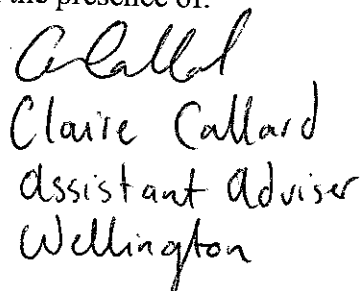 the presence of:
Claire Callard
Assistant Adviser
Wellington